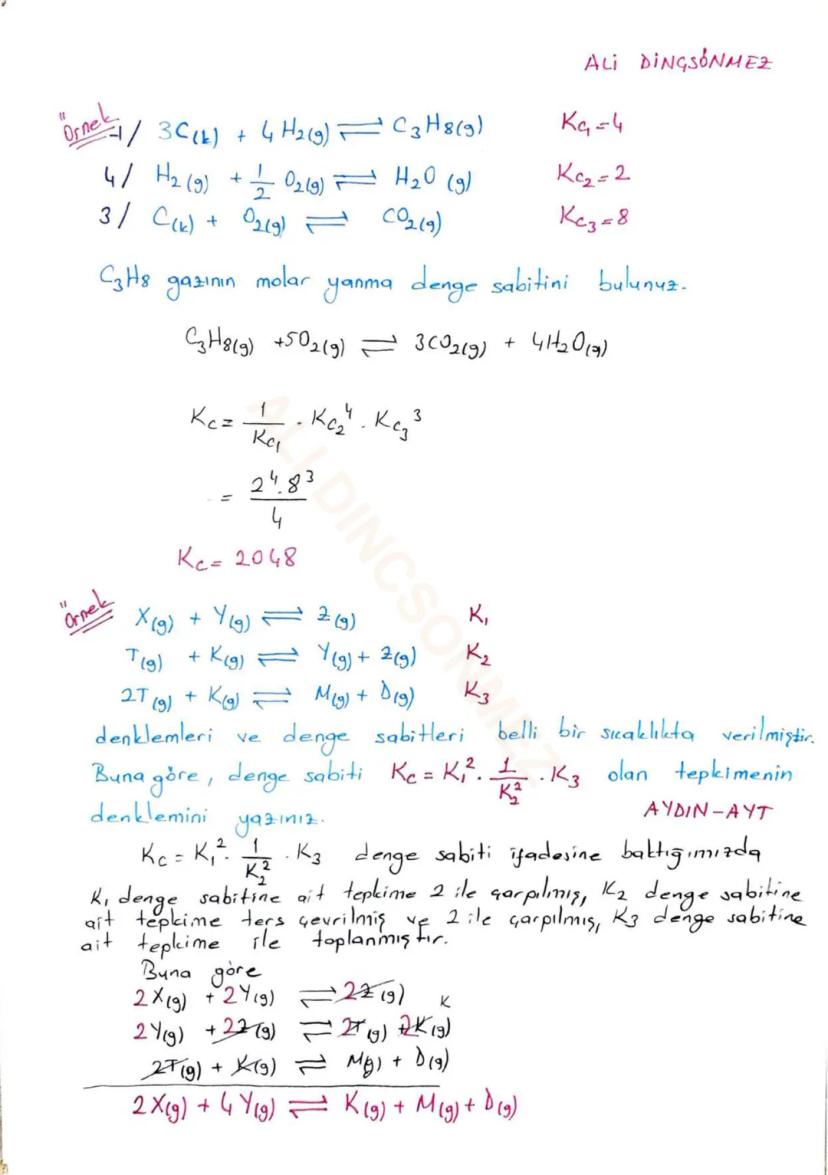 ALİ DİNÇSÖNMEZ
Örnek -1/ 3C(k) + 4H2(g) ⇌ C3H8(g) Kc1=4
4/ H2(g) + 1/2 O2(g) ⇌ H2O(g) Kc2=2
3/ C(k) + O2(g) ⇌ CO2(g) Kc3=8
C3H8 gazının molar yanma denge sabitini bulunuz.
C3H8(g) +5O2(g) ⇌ 3CO2(g) + 4H2O(g)
Kc= 1/Kc1 . Kc2^4 . Kc3^3
= 2^4.8^3/4
Kc= 2048
ALI DINCSONMEZ
Örnek X(g) + Y(g) ⇌ Z(g) K1
T(g) + K(g) ⇌ Y(g) + Z(g) K2
2T(g) + K(g) ⇌ M(g) + D(g) K3
denklemleri ve denge sabitleri belli bir sıcaklıkta verilmiştir.
Buna göre, denge sabiti Kc = K1^2 . 1/K2^2 . K3 olan tepkimenin
denklemini yazınız. AYDIN-AYT
Kc = K1^2 . 1/K2^2 . K3 denge sabiti ifadesine baktığımızda
K1 denge sabitine ait tepkime 2 ile çarpılmış, K2 denge sabitine
ait tepkime ters çevrilmiş ve 2 ile çarpılmış, K3 denge sabitine
ait tepkime ile toplanmıştır.
Buna göre
2X(g) + 2Y(g) ⇌ 2Z(g) K
2Y(g) + 2Z(g) ⇌ 2T(g) 2K(g)
2T(g) + K(g) ⇌ M(g) + D(g)
2X(g) + 4Y(g) ⇌ K(g) + M(g) + D(g)